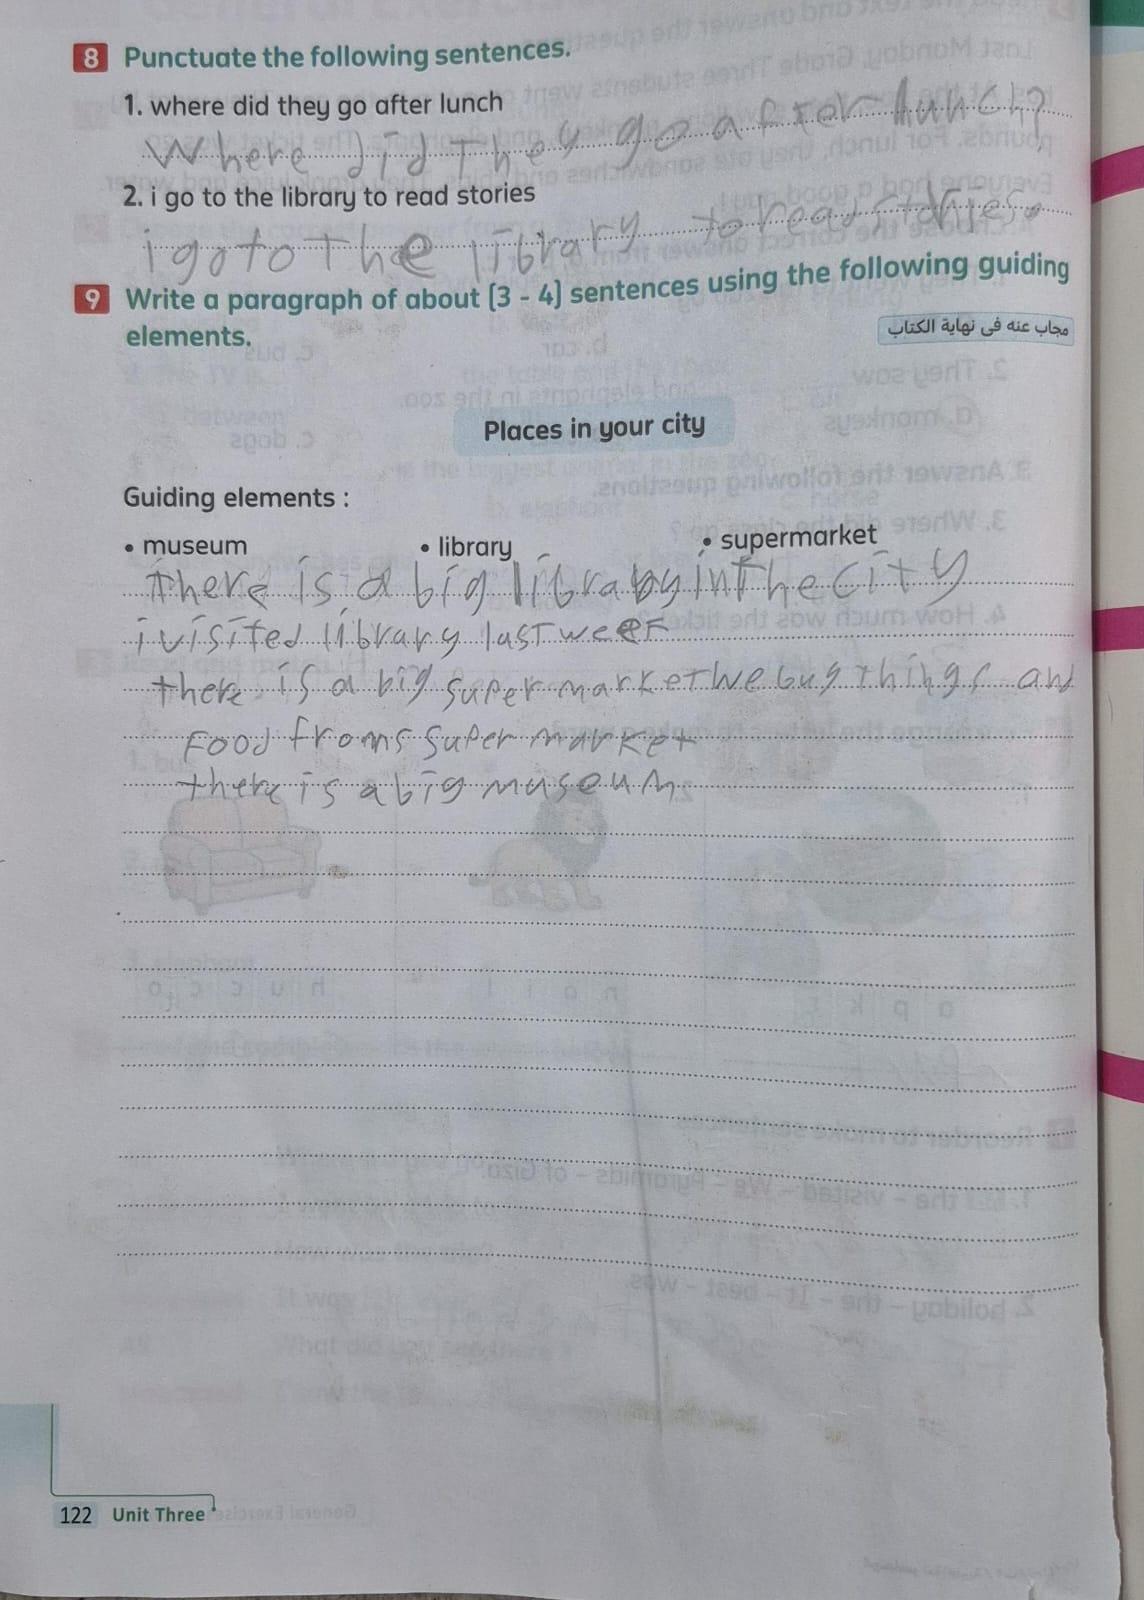 8 Punctuate the following sentences.
1. where did they go after lunch
Where did they go after lunch?
2. i go to the library to read stories
i go to the library to read stories.
9 Write a paragraph of about (3 - 4) sentences using the following guiding
elements.
مجاب عنه فى نهاية الكتاب
Places in your city
Guiding elements :
• museum • library • supermarket
there is a big library in the city
i visited library last week
there is a big super market we buy things and
Food from super market
there is a big museum.
122 Unit Three